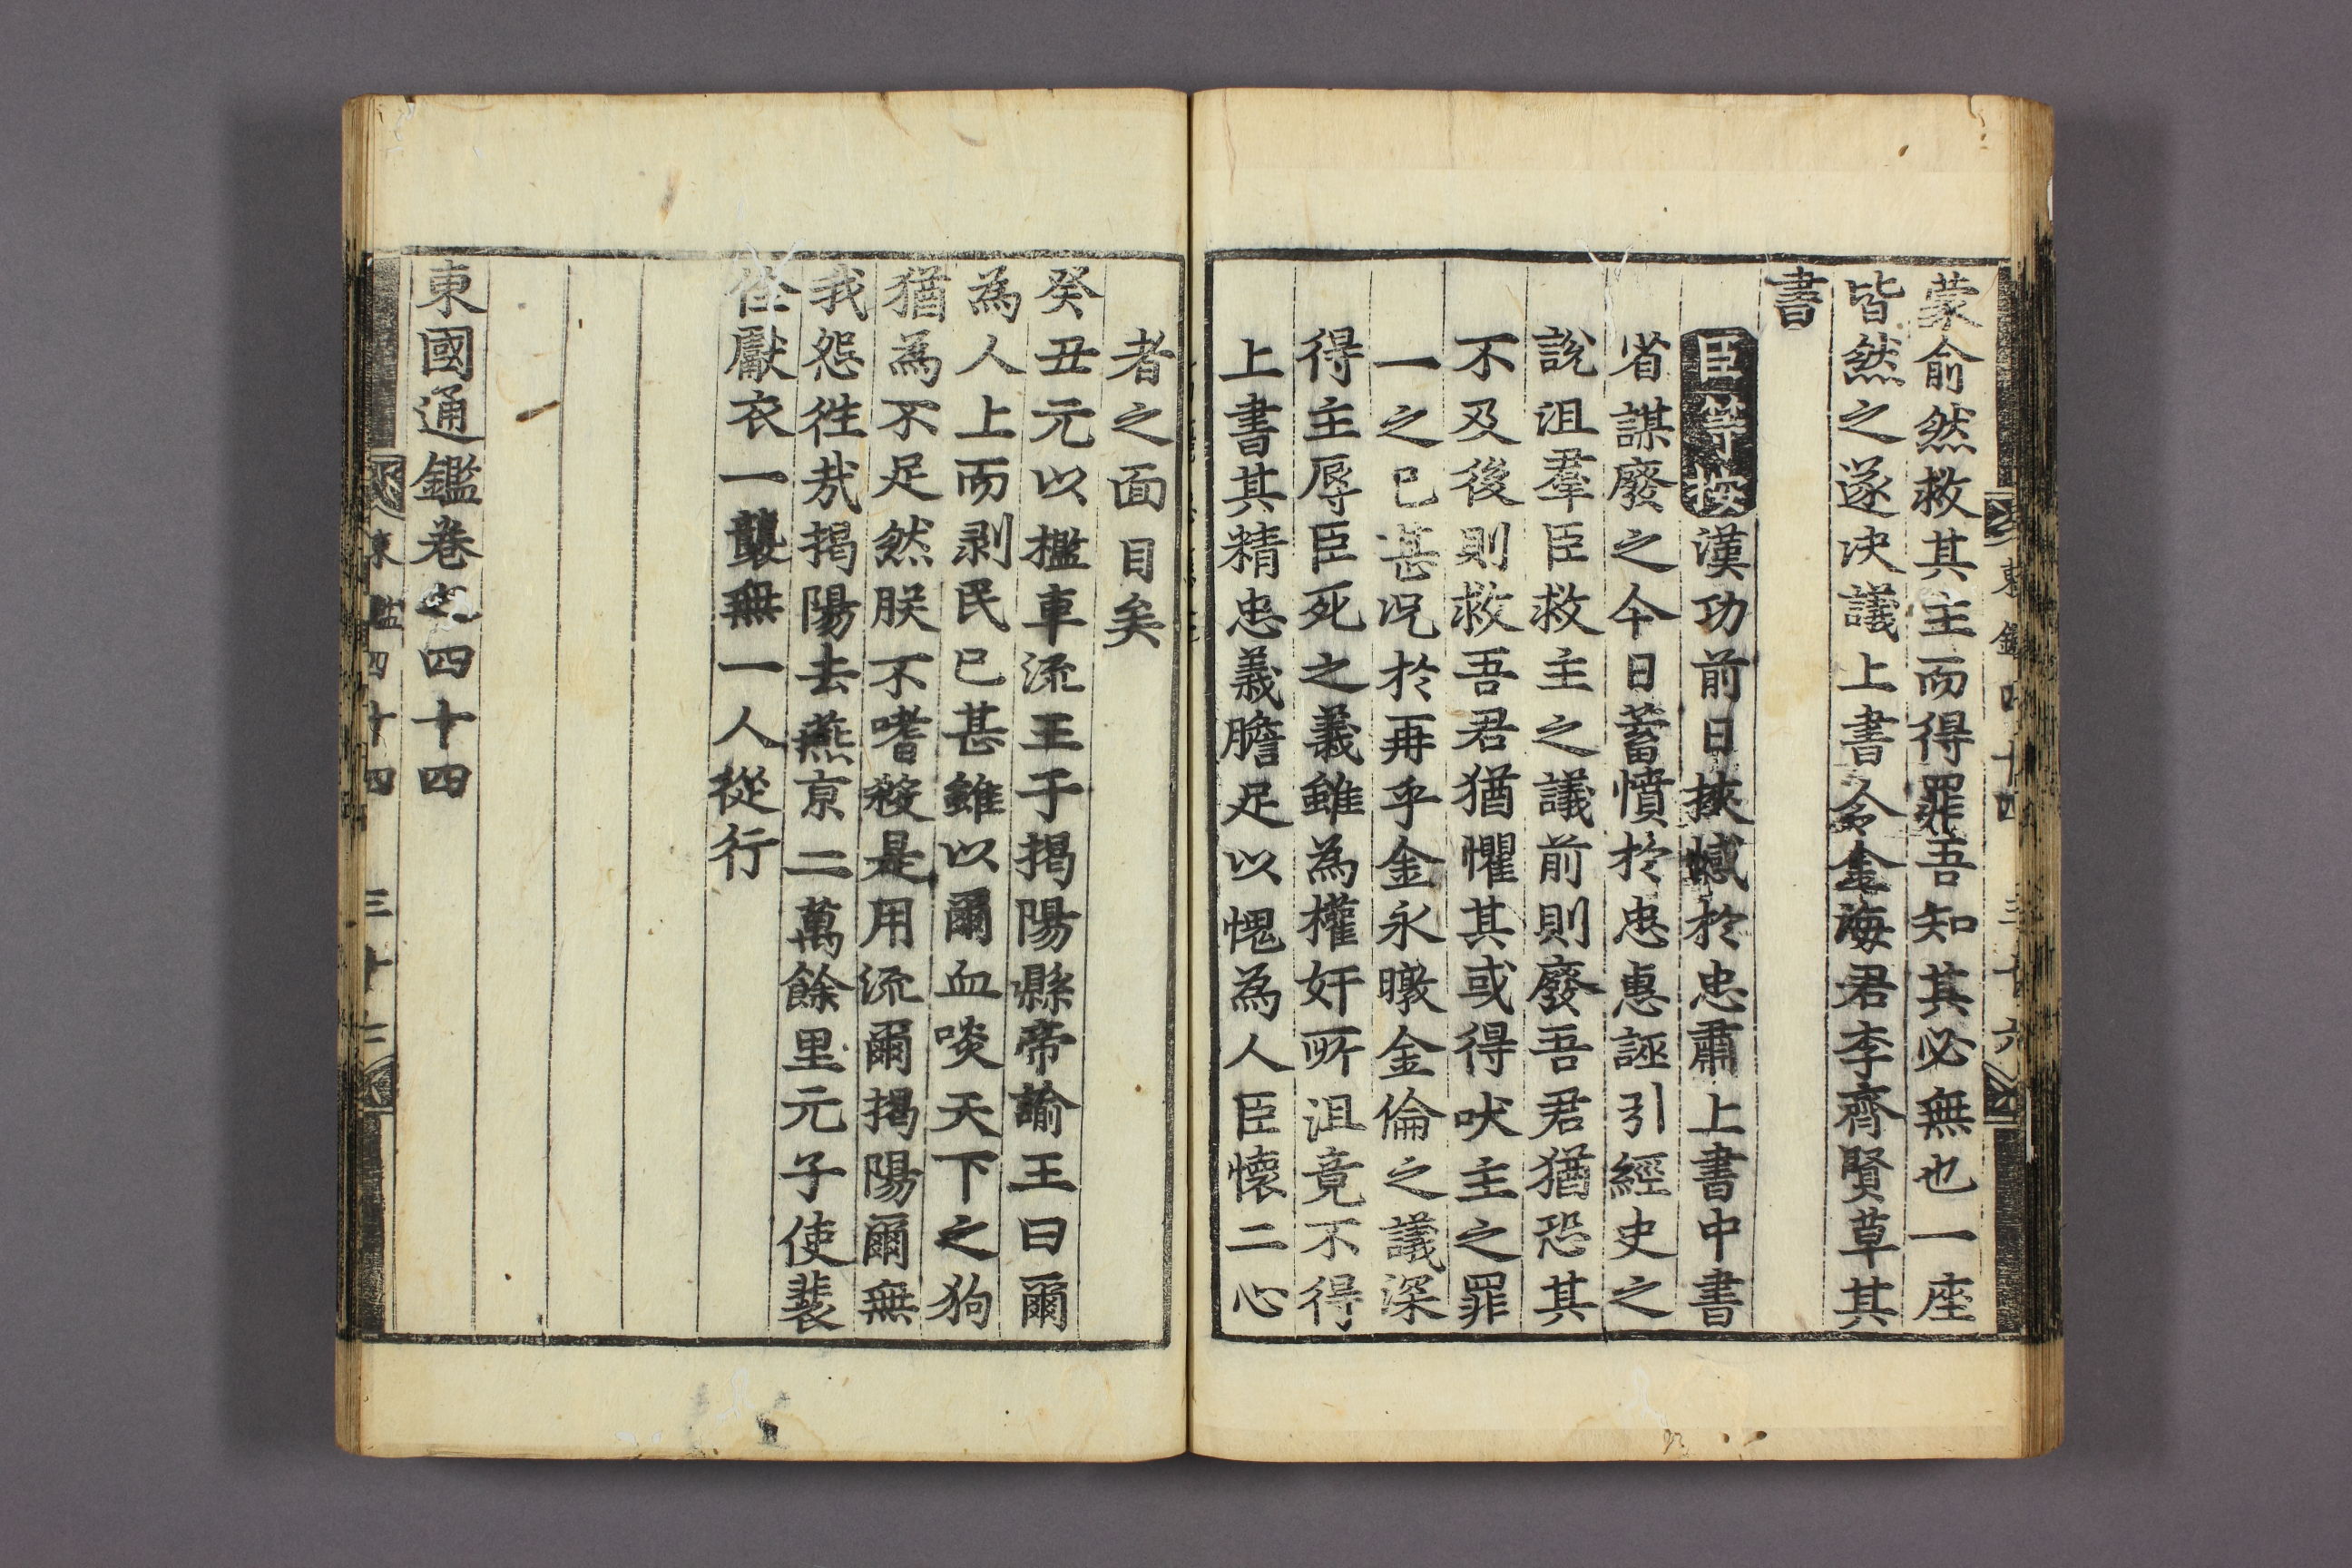 蒙俞然救其主而得罪吾知其必無也一座
皆然之遂决議上書令金海君李齊賢草其
書
臣等按漢功前日挾憾於忠肅上書中書
省謀廢之今日蓄憤於忠惠誣引經史之
說沮羣臣救主之議前則廢吾君猶恐其
不及後則救吾君猶懼其或得吠主之罪
一之已甚况於再乎金永暾金倫之議深
得主辱臣死之義雖為權奸所沮竟不得
上書其精忠義膽足以愧為人臣懷二心
者之面目矣
癸丑元以檻車流王于揭陽縣帝諭王曰爾
為人上而剥民已甚雖以爾血啖天下之狗
猶為不足然朕不嗜殺是用流爾揭陽爾無
我怨徃㢤揭陽去燕京二萬餘里元子使裴
佺獻衣一襲無一人從行
東國通鑑卷之四十四
東鑑四十四
東鑑四十四 三十六